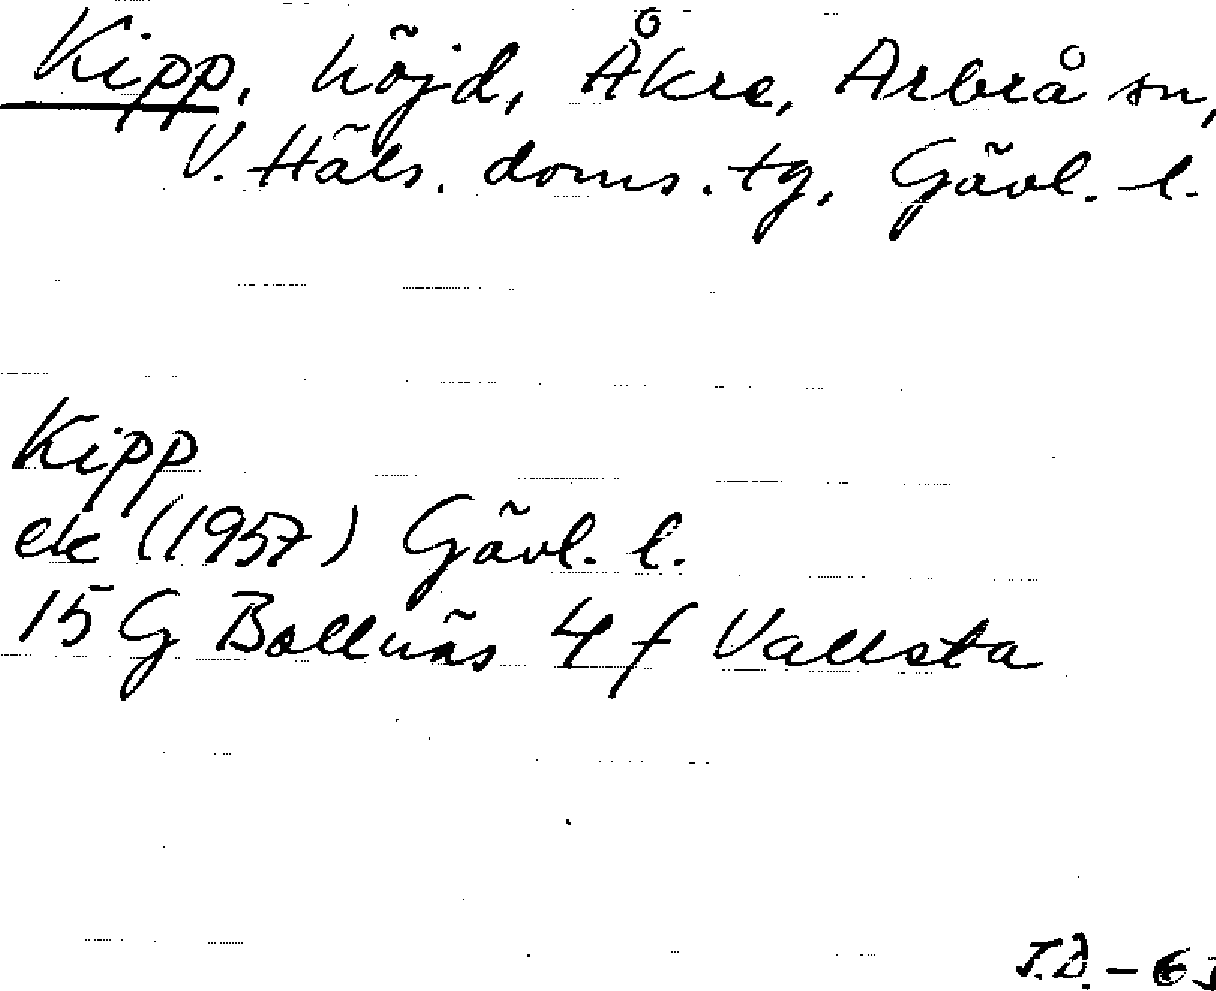 Kipp, höjd, Åkre, Arbrå sn,
V. Häls. doms. tg, Gävl. l.
Kipp
ek (1957) Gävl. l.
15 G Bollnäs 4 f Vallsta